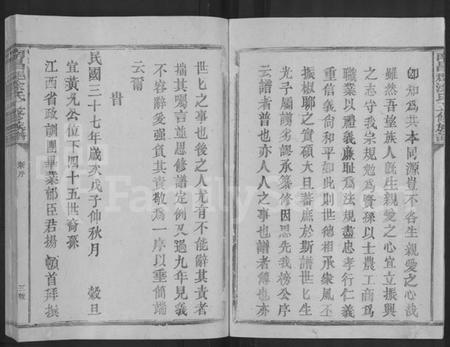 卽知爲共本同源豈不各生親愛之心哉
雖然吾望族人旣生親愛之心宜立振興
之志守我宗規勉爲賢孫以士農工商爲
職業以禮義廉恥爲法規盡忠孝行仁義
重信義尙和平如此則世德相承柴風丕
振椒聊之實碩大且蕃庶於斯譜世匕生
光子屬謭劣承纂修因思先我榜公序
云譜者也亦人人之事也譜者傳也亦
世匕之事也後之人尤有不能辭其責者
揣其囑言並思修譜定例又遇九年見義
不容辭爰強負其責敬爲一序以垂簡端
云爾
旹
民國三十七年歲次戊子仲秋月 穀旦
宜黃九公位下四十五世裔孫
江西省政訓團畢業郁臣君揚 頓首拜撰
三